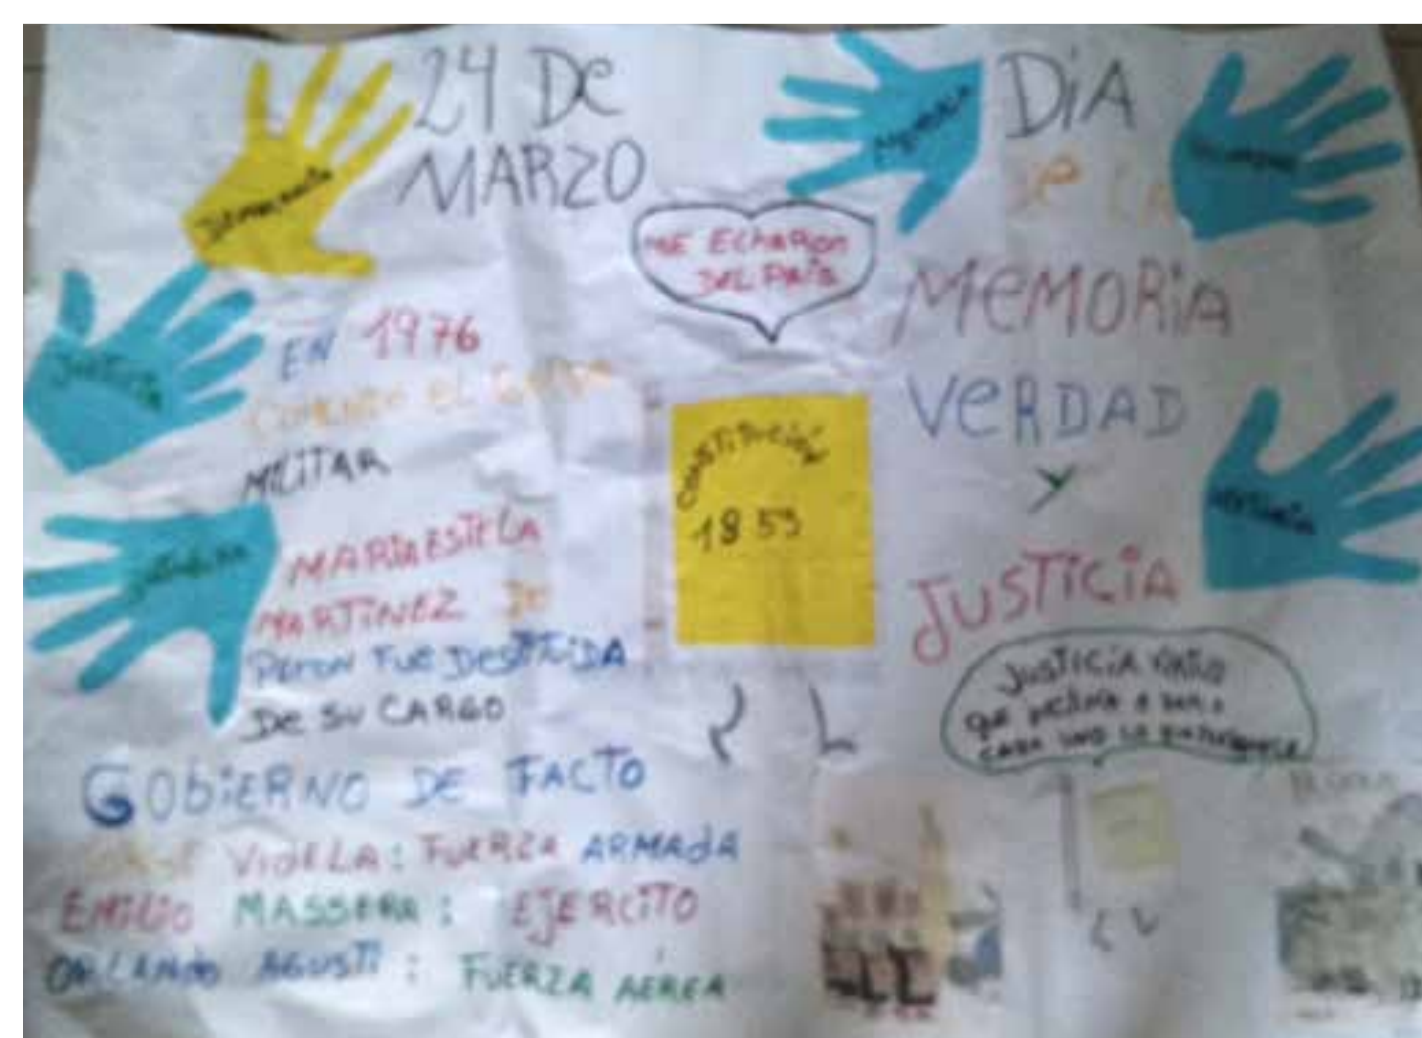 24 DE
MARZO
DIA
DE LA
MEMORIA
VERDAD
Y
JUSTICIA
MEMORIA
JUSTICIA
ME EChARON
DEL PAÍS
EN 1976
COMENZO EL GOLPE
MILITAR
MARIA ESTELA
MARTINEZ DE
PERON FUE DESTITUIDA
DE SU CARGO
CONSTITUCIÓN
1853
JUSTICIA
QUE A DAR A
CADA UNO LO
GObiERNO DE FACTO
VIDELA: FUERZA ARMAdA
EMiLiO MASSERA: EJERCITO
ORLANDO AGUSTI: FUERZA AÉREA